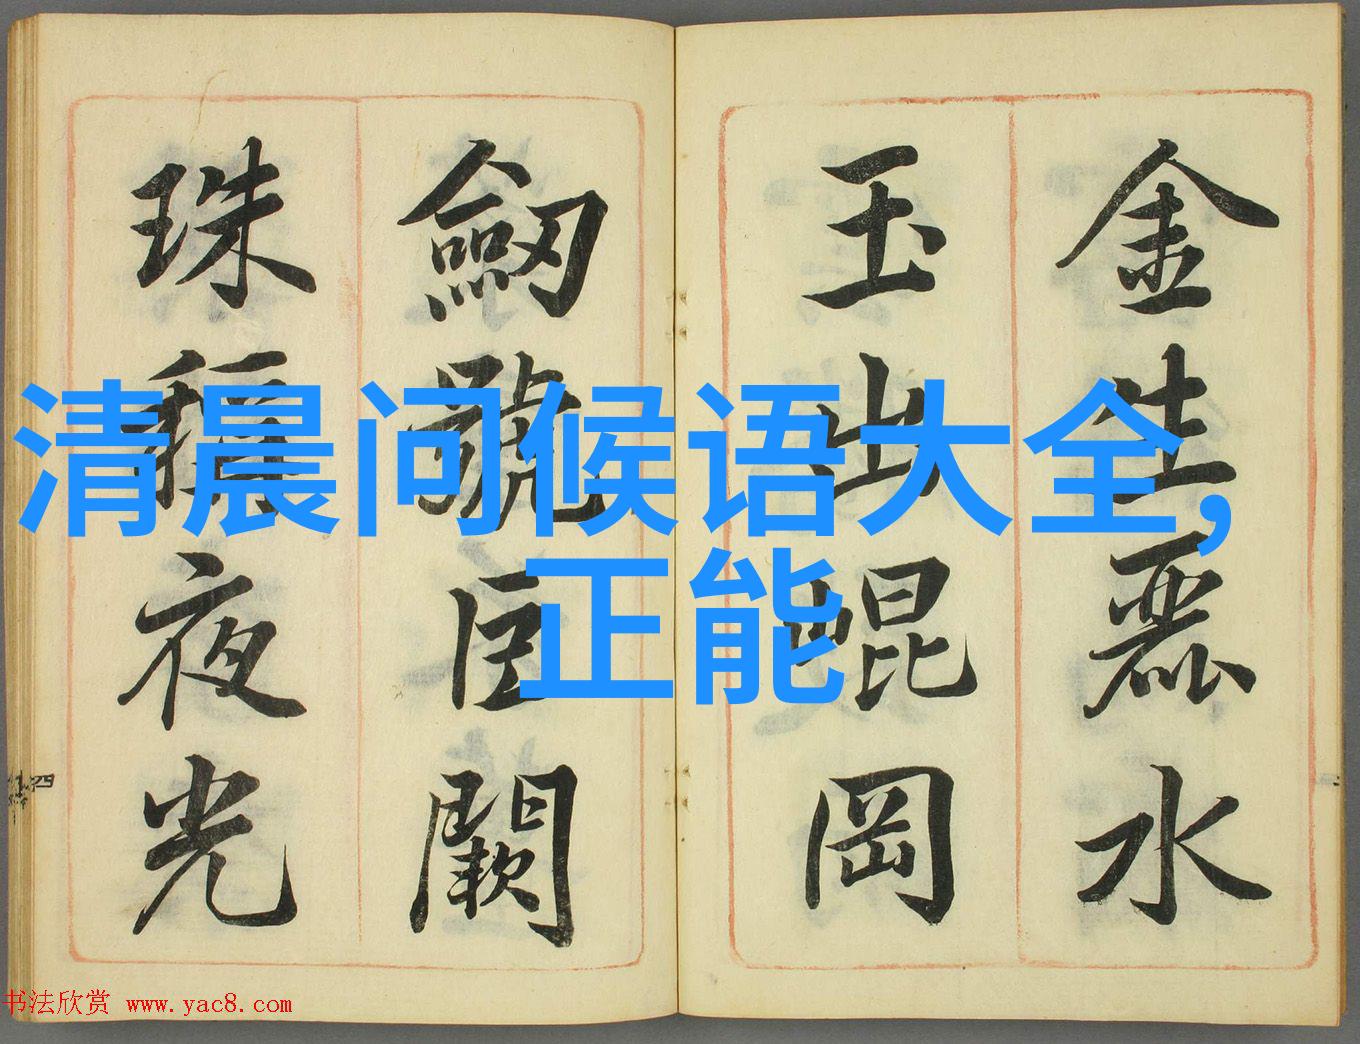 金生麗水
玉出崐岡
劒號巨闕
珠稱夜光
清晨问候语大全,
正能
四
书法欣赏 www.yac8.com